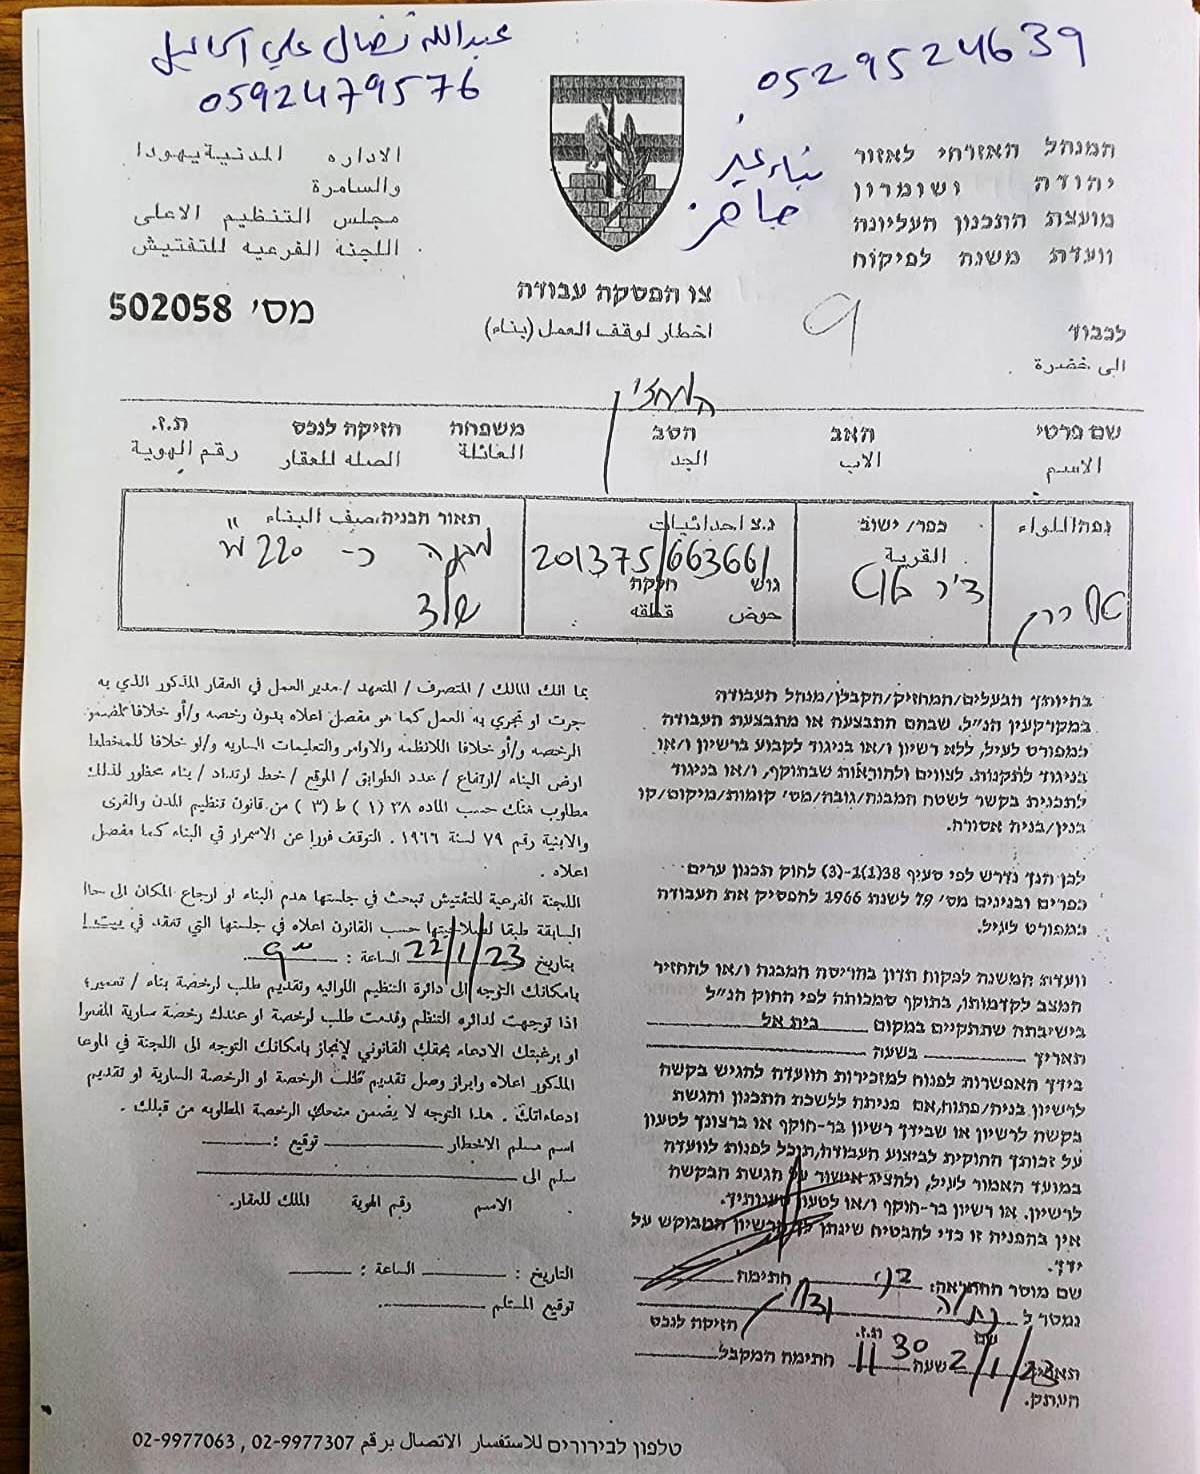 عبدالله نضال علي
0592479576
0529524639
بناء غير
جاهز
המנהל האזרחי לאזור
יהודה ושומרון
מועצת התכנון העליונה
וועדת משנה לפיקוח
الاداره المدنية يهودا
والسامرة
مجلس التنظيم الاعلى
اللجنة الفرعيه للتفتيش
צו הפסקת עבודה
اخطار لوقف العمل (بناء)
מס' 502058
9
לכבוד
الى حضرة
המחזיק
שם פרטי האב הסב משפחה חזיקה לנכס ת.ז.
الاسم الاب الجد العائلة الصله للعقار رقم الهوية
נפה اللواء
כפר/ ישוב
القرية
נ.צ احداثيات
201375/663661
גוש חלקה
حوض قطعه
תאור הבניה، صيف البناء
מבנה כ- 220 מ"
שלד
בהיותך הבעלים/המחזיק/הקבלן/מנהל העבודה
במקרקעין הנ"ל, שבהם התבצעה או מתבצעת העבודה
כמפורט לעיל, ללא רשיון ו/או בניגוד לקבוע ברשיון ו/או
בניגוד לתקנות. לצווים ולהוראות שבתוקף, ו/או בניגוד
לתכנית בקשר לשטח המבנה/גובה/מס' קומות/מיקום/קו
בנין/בניה אסורה.
לכן הנך נדרש לפי סעיף 38(1)ב-(3) לחוק תכנון ערים
כפרים ובנינים מס' 79 לשנת 1966 להפסיק את העבודה
כמפורט לעיל.
וועדת המשנה לפקוח תדון בהריסת המבנה ו/או להחזיר
המצב לקדמותו, בתוקף סמכותה לפי החוק הנ"ל
בישיבתה שתתקיים במקום בית אל
תאריך בשעה
בידך האפשרות לפנות למזכירות הוועדה להגיש בקשה
לרשיון בניה/פתוח, אם פנית ללשכת התכנון והגשת
בקשה לרשיון או שבידך רשיון בר-תוקף או ברצונך לטעון
על זכותך החוקית לביצוע העבודה, תוכל לפנות לוועדה
במועד האמור לעיל, ולהציג אישור על הגשת הבקשה
לרשיון. או רשיון בר-תוקף ו/או לטעון טענותיך.
אין בהפניה זו כדי להבטיח שינתן לך הרשיון המבוקש על
ידך.
שם מוסר ההתראה: חתימה
נמסר ל
שם ת.ז. חזיקה לנכס
תאריך 2/1/23 שעה 11 30 חתימת המקבל
העתק.
بما انك المالك / المتصرف / المتعهد / مدير العمل في العقار المذكور الذي به
جرت او تجري به العمل كما هو مفصل اعلاه بدون رخصه و/أو خلافا لمضمو
الرخصه و/أو خلافا للانظمه والاوامر والتعليمات الساريه و/او خلافا للمخطط
ارض البناء /ارتفاع / عدد الطوابق / الموقع / خط ارتداد / بناء محظور لذلك
مطلوب منك حسب الماده ٣٨ (١) ط (٣) من قانون تنظيم المدن والقرى
والابنية رقم ٧٩ لسنة ١٩٦٦ . التوقف فورا عن الاسمرار في البناء كما مفصل
اعلاه .
اللجنة الفرعية للتفتيش تبحث في جلستها هدم البناء او ارجاع المكان الى حا
السابقة طبقا لصلاحيتها حسب القانون اعلاه في جلستها التي تنعقد في بيت ا
بتاريخ 22/1/23 الساعة : 9
بامكانك التوجه الى دائرة التنظيم اللوائيه وتقديم طلب لرخصة بناء / تعمير،
اذا توجهت لدائره التنظم وقدمت طلب لرخصة او عندك رخصة سارية المفعوا
او برغبتك الادعاء بحقك القانوني لإنجاز بامكانك التوجه الى اللجنة في الموعا
المذكور اعلاه وابراز وصل تقديم طلب الرخصة او الرخصة السارية او تقديم
ادعاءاتك . هذا التوجه لا يضمن منحك الرخصة المطلوبه من قبلك .
اسم مسلم الاخطار توقيع :
سلم الى
الاسم رقم الهوية المالك للعقار.
التاريخ : الساعة :
توقيع المستلم
טלפון לבירורים للاستفسار الاتصال برقم 02-9977307 , 02-9977063